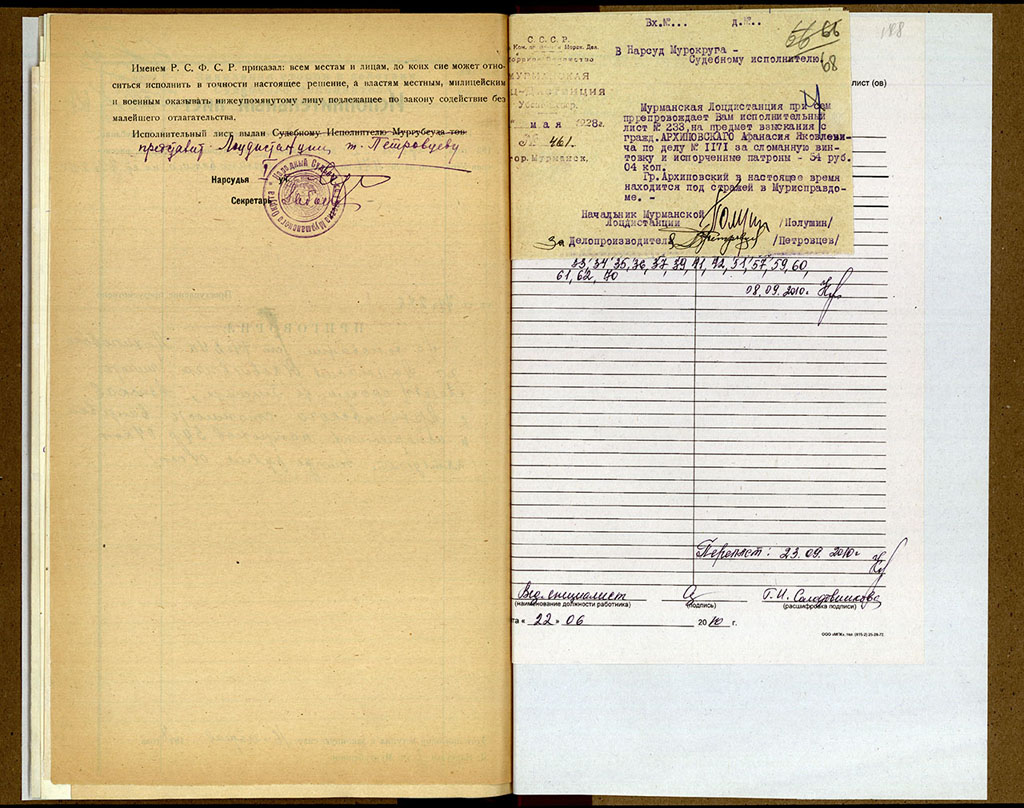 Именем Р. С. Ф. С. Р. приказал: всем местам и лицам, до коих сие может отно-
ситься исполнить в точности настоящее решение, а властям местным, милицейским
и военным оказывать нижеупомянутому лицу подлежащее по закону содействие без
малейшего отлагательства,
Исполнительный лист выдан Судебному Исполнителю Мургубсуда тов
представит. Лоцдистанции т. Петровцеву
Нарсудья
Секретарь
Вх.№... д.№..
66 66
68
С. С. С. Р.
В Нарсуд Мурокруга -
Судебному исполнителю.
МУРМАНСКАЯ
Ц-ДИСТАНЦИЯ
мая 1928г.
№ 461.
гор. Мурманск.
Мурманская Лоцдистанция при сем
прпрепровождает Вам исполнительный
лист № 233, на предмет взыскания с
гражд. АРХИПОВСКОГО Афанасия Яковлеви-
ча по делу № II7I за сломанную вин-
товку и испорченные патроны - 54 руб.
04 коп.
Гр. Архиповский в настоящее время
находится под стражей в Мурисправдо-
ме. -
Начальник Мурманской
Лоцдистанции /Полушин/
За Делопроизводителя /Петровцев/
188
лист (ов)
33, 34, 35, 36, 37, 39, 41, 42, 51, 57, 59, 60,
61, 62, 70
08.09.2010г.
Переплет: 23.09.2010г
Вед. специалист Г.И. Солодовникова
(наименование должности работника) (подпись) (расшифровка подписи)
та « 22 » 06 2010 г.